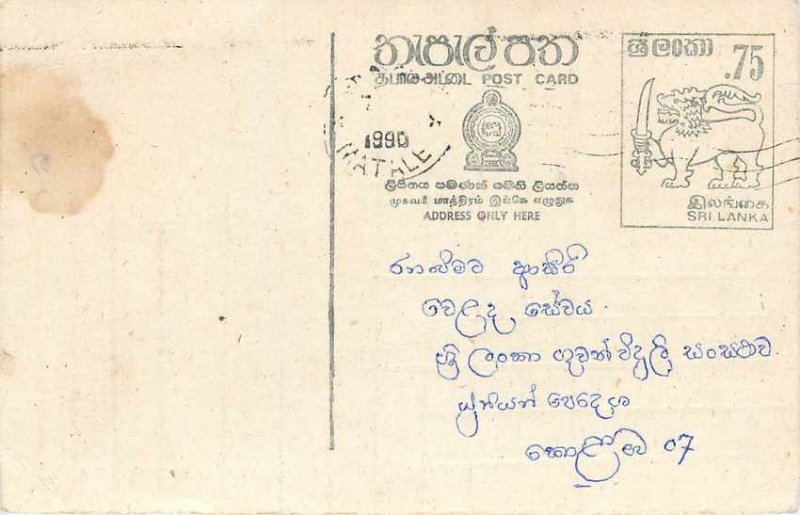 තැපැල් පත
தபால்அட்டை POST CARD
ශ්‍රී ලංකා
.75
1990
MATALE
ලිපිනය පමණක් මෙහි ලියන්න
முகவரி மாத்திரம் இங்கே எழுதுக
ADDRESS ONLY HERE
இலங்கை
SRI LANKA
රනබිමට ආසිරි
වෙළඳ සේවය
ශ්‍රී ලංකා ගුවන් විදුලි සංස්ථාව
කොළඹ 07